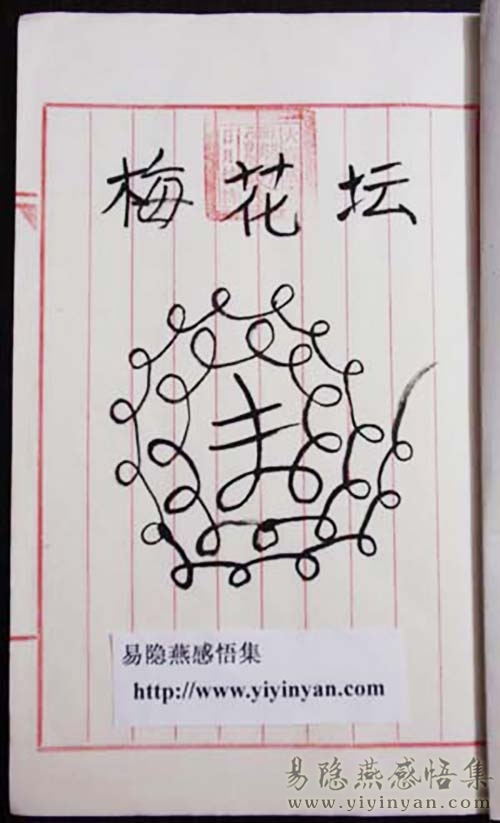 梅花坛
易隐燕感悟集
http://www.yiyinyan.com
易隐燕感悟集
www.yiyinyan.com